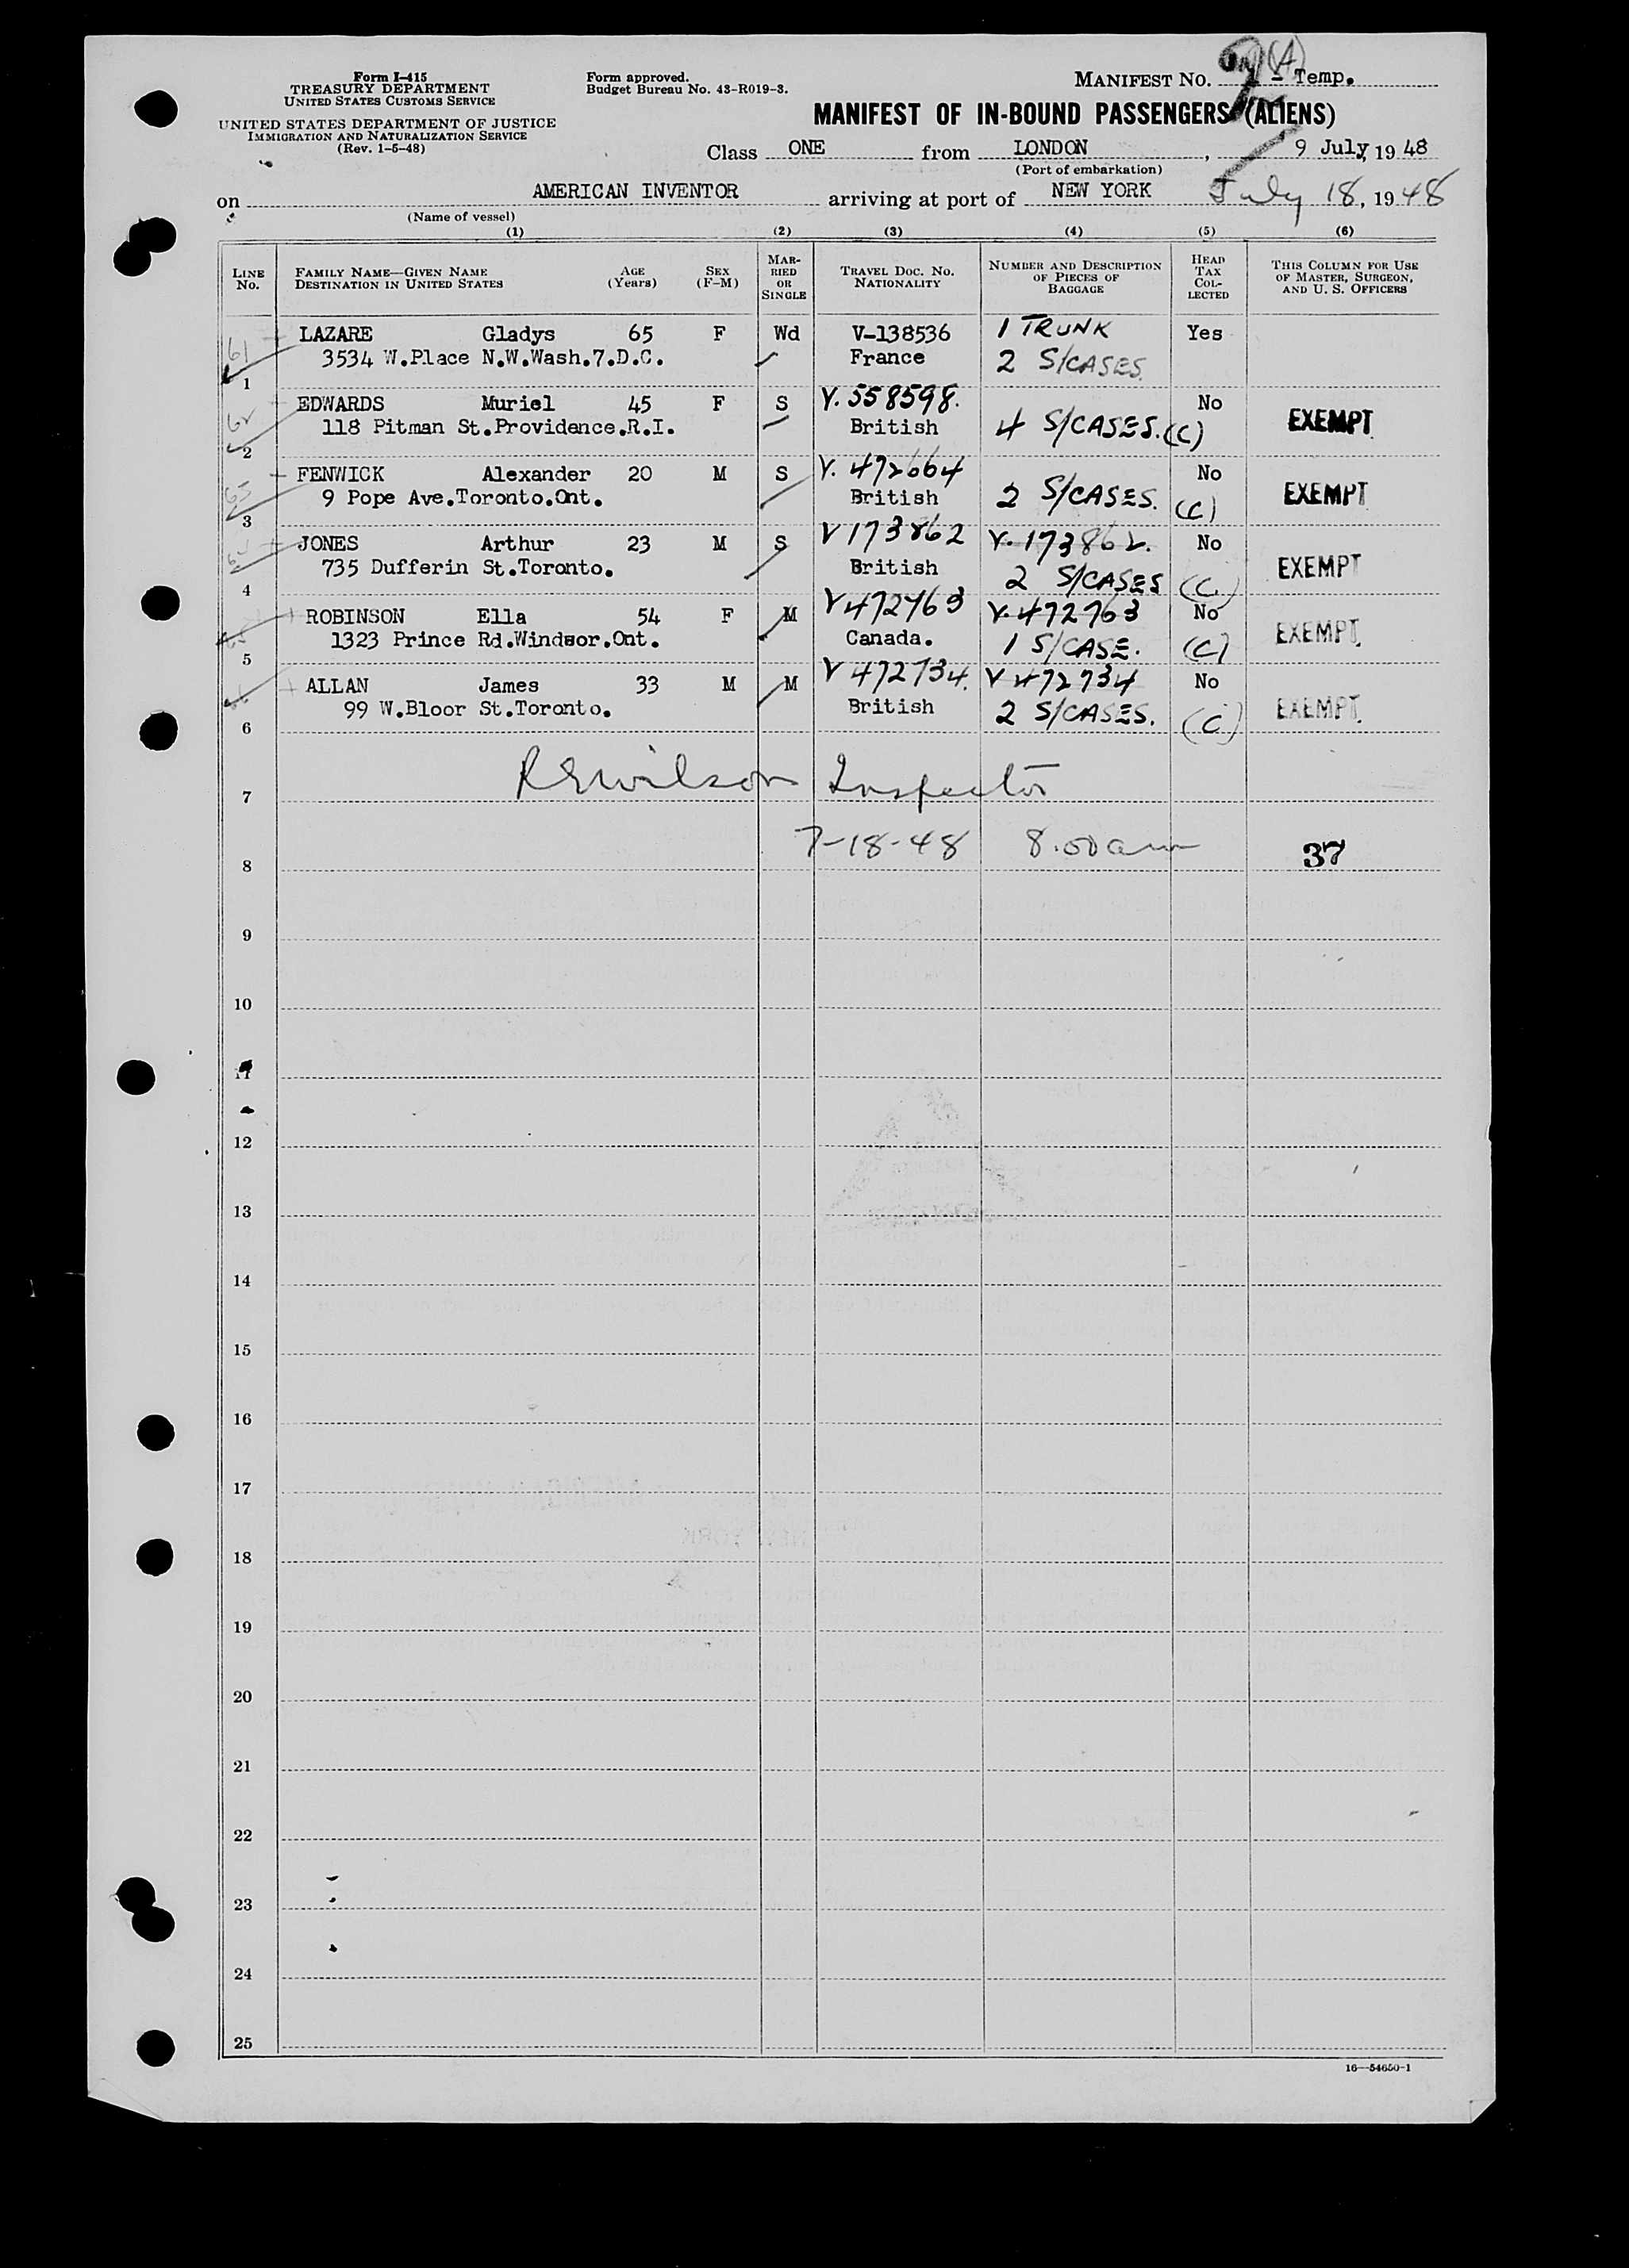 Form I-415
TREASURY DEPARTMENT
UNITED STATES CUSTOMS SERVICE
UNITED STATES DEPARTMENT OF JUSTICE
IMMIGRATION AND NATURALIZATION SERVICE
(Rev. 1-5-48)
Form approved.
Budget Bureau No. 43-R019-3.
MANIFEST NO. (A) - Temp.
MANIFEST OF IN-BOUND PASSENGERS (ALIENS)
Class ONE from LONDON, 9 July, 1948
(Port of embarkation)
on AMERICAN INVENTOR arriving at port of NEW YORK July 18, 1948
(Name of vessel)
(1) (2) (3) (4) (5) (6)
LINE No. FAMILY NAME—GIVEN NAME DESTINATION IN UNITED STATES AGE (Years) SEX (F-M) MARRIED OR SINGLE TRAVEL DOC. NO. NATIONALITY NUMBER AND DESCRIPTION OF PIECES OF BAGGAGE HEAD TAX COLLECTED THIS COLUMN FOR USE OF MASTER, SURGEON, AND U. S. OFFICERS
61 LAZARE Gladys 65 F Wd V-138536 1 TRUNK Yes
3534 W.Place N.W.Wash.7.D.C. France 2 S/CASES.
1
62 EDWARDS Muriel 45 F S V. 558598. No
118 Pitman St.Providence.R.I. British 4 S/CASES. (C) EXEMPT
2
63 FENWICK Alexander 20 M S V. 472664 No
9 Pope Ave.Toronto.Ont. British 2 S/CASES. (C) EXEMPT
3
JONES Arthur 23 M S V 173862 V. 173862. No
735 Dufferin St.Toronto. British 2 S/CASES (C) EXEMPT
4
ROBINSON Ella 54 F M V 472763 V. 472763 No
1323 Prince Rd.Windsor.Ont. Canada. 1 S/CASE. (C) EXEMPT
5
ALLAN James 33 M M V 472734. V 472734 No
99 W.Bloor St.Toronto. British 2 S/CASES. (C) EXEMPT
6
REWilson Inspector
7
7-18-48 8.00 am 37
8
9
10
11
12
13
14
15
16
17
18
19
20
21
22
23
24
25
16—54650-1